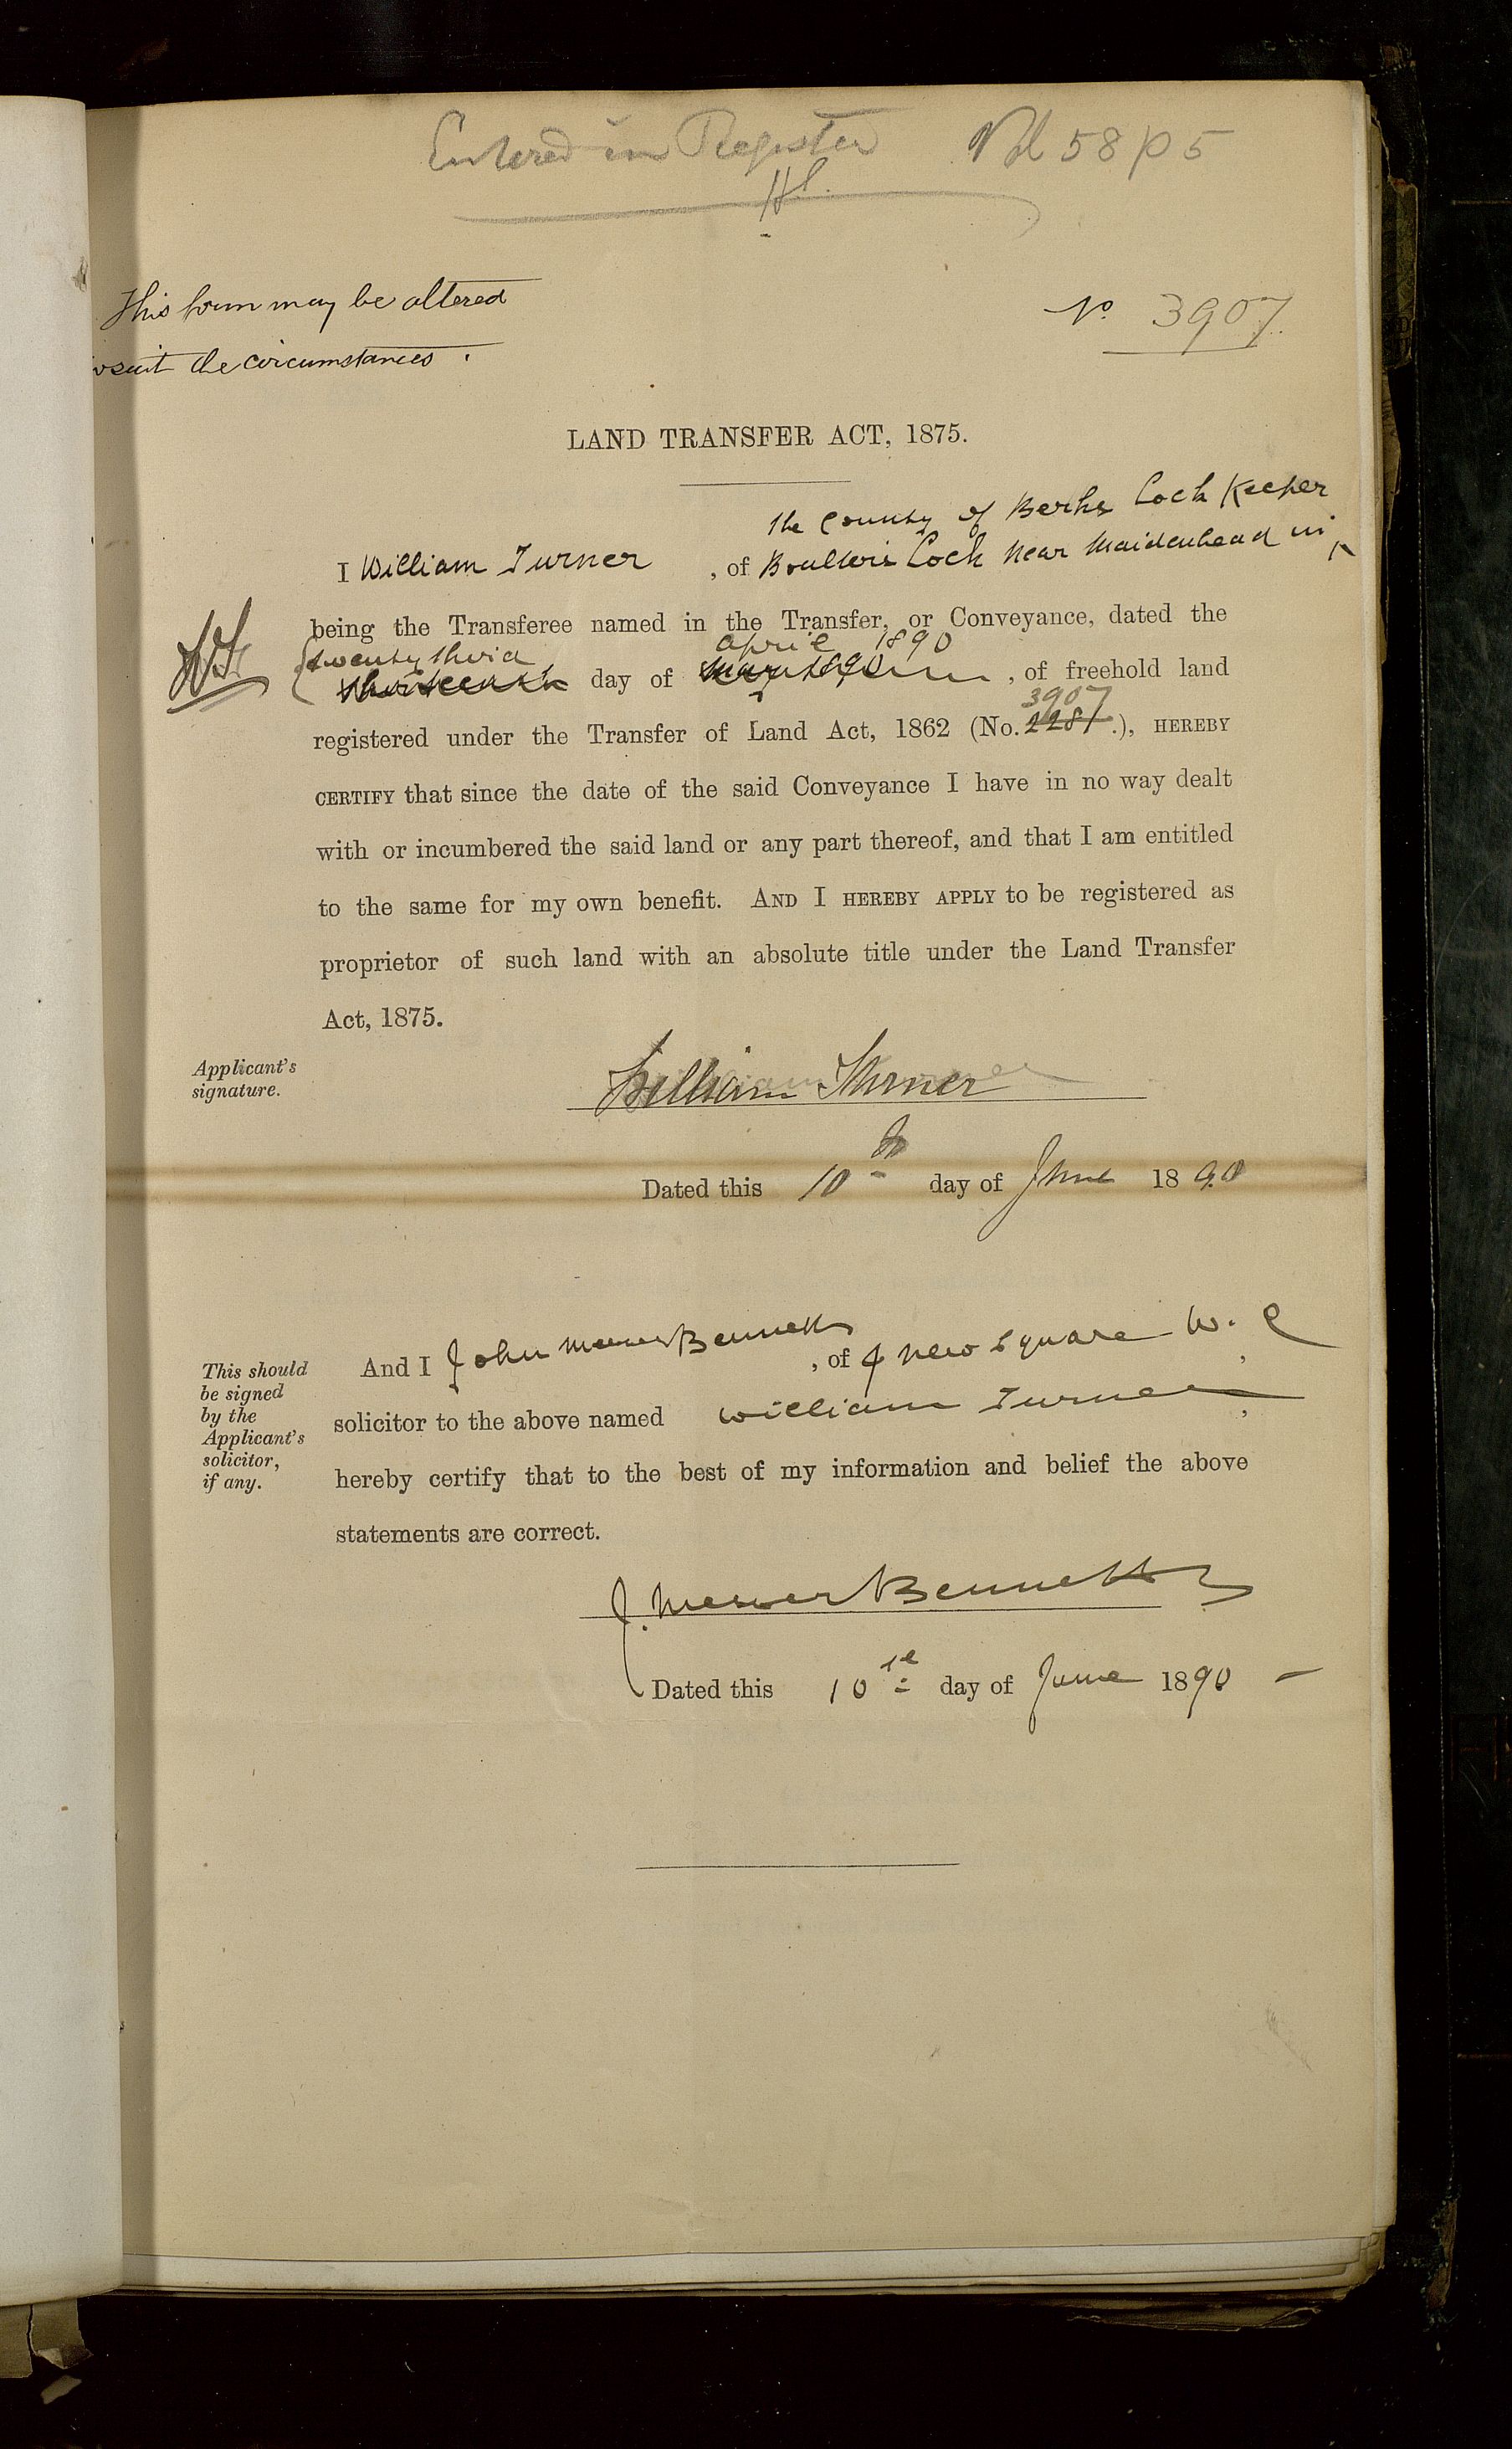 Entered in Register Vol 58 p 5
This form may be altered
to suit the circumstances.
No. 3907
LAND TRANSFER ACT, 1875.
the County of Berks Lock Keeper
I William Turner, of Boulter's Lock near Maidenhead in
being the Transferee named in the Transfer, or Conveyance, dated the
twenty third april 1890
thirteenth day of May 1890, of freehold land
3907
registered under the Transfer of Land Act, 1862 (No. 2287.), HEREBY
CERTIFY that since the date of the said Conveyance I have in no way dealt
with or incumbered the said land or any part thereof, and that I am entitled
to the same for my own benefit. AND I HEREBY APPLY to be registered as
proprietor of such land with an absolute title under the Land Transfer
Act, 1875.
Applicant's
signature.
William Turner
Dated this 10th day of June 1890
This should
be signed
by the
Applicant's
solicitor,
if any.
And I John Bennett, of 4 New Square W.C,
solicitor to the above named William Turner,
hereby certify that to the best of my information and belief the above
statements are correct.
J. Bennett
Dated this 10th day of June 1890